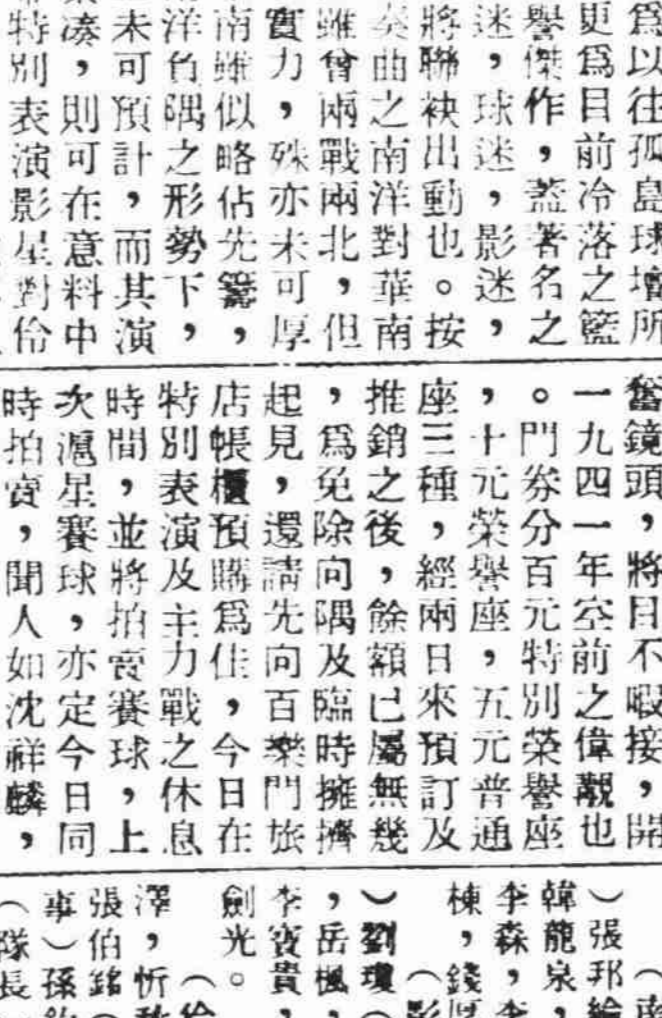 爲以往孤島球壇所
更爲目前冷落之籃
譽傑作，蓋著名之
迷，球迷，影迷，
將聯袂出動也。按
奏曲之南洋對華南
雖曾兩戰兩北，但
實力，殊亦未可厚
南雖似略佔先籌，
洋負隅之形勢下，
未可預計，而其演
湊，則可在意料中
特別表演影星對伶
奮鏡頭，將目不暇接，開
一九四一年空前之偉觀也
。門券分百元特別榮譽座
，十元榮譽座，五元普通
座三種，經兩日來預訂及
推銷之後，餘額已屬無幾
，爲免除向隅及臨時擁擠
起見，還請先向百樂門旅
店帳櫃預購爲佳，今日在
特別表演及主力戰之休息
時間，並將拍賣賽球，上
次滬星賽球，亦定今日同
時拍賣，聞人如沈祥麟，
）張邦綸（南
韓龍泉，
李森，李
棟，錢
（影
）劉瓊（
，岳楓，
李寶貴，
劍光。
（伶
澤，忻
張伯銘（
事）孫
（隊長